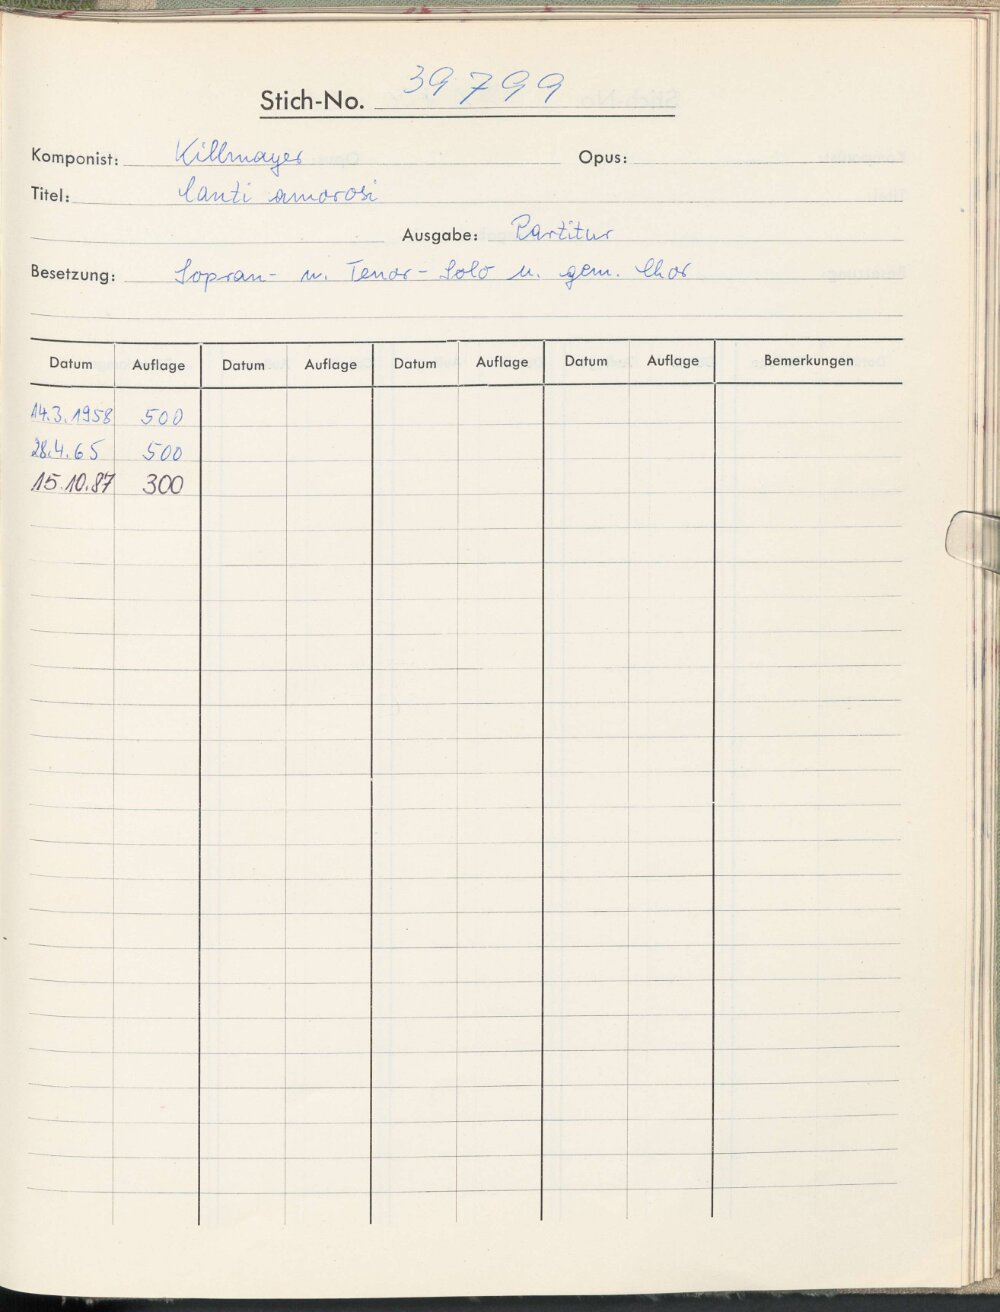 Stich-No. 39799
Komponist: Killmayer Opus:
Titel: Canti amorosi
Ausgabe: Partitur
Besetzung: Sopran- u. Tenor-Solo u. gem. Chor
Datum Auflage Datum Auflage Datum Auflage Datum Auflage Bemerkungen
14.3.1958 500
28.4.65 500
15.10.87 300